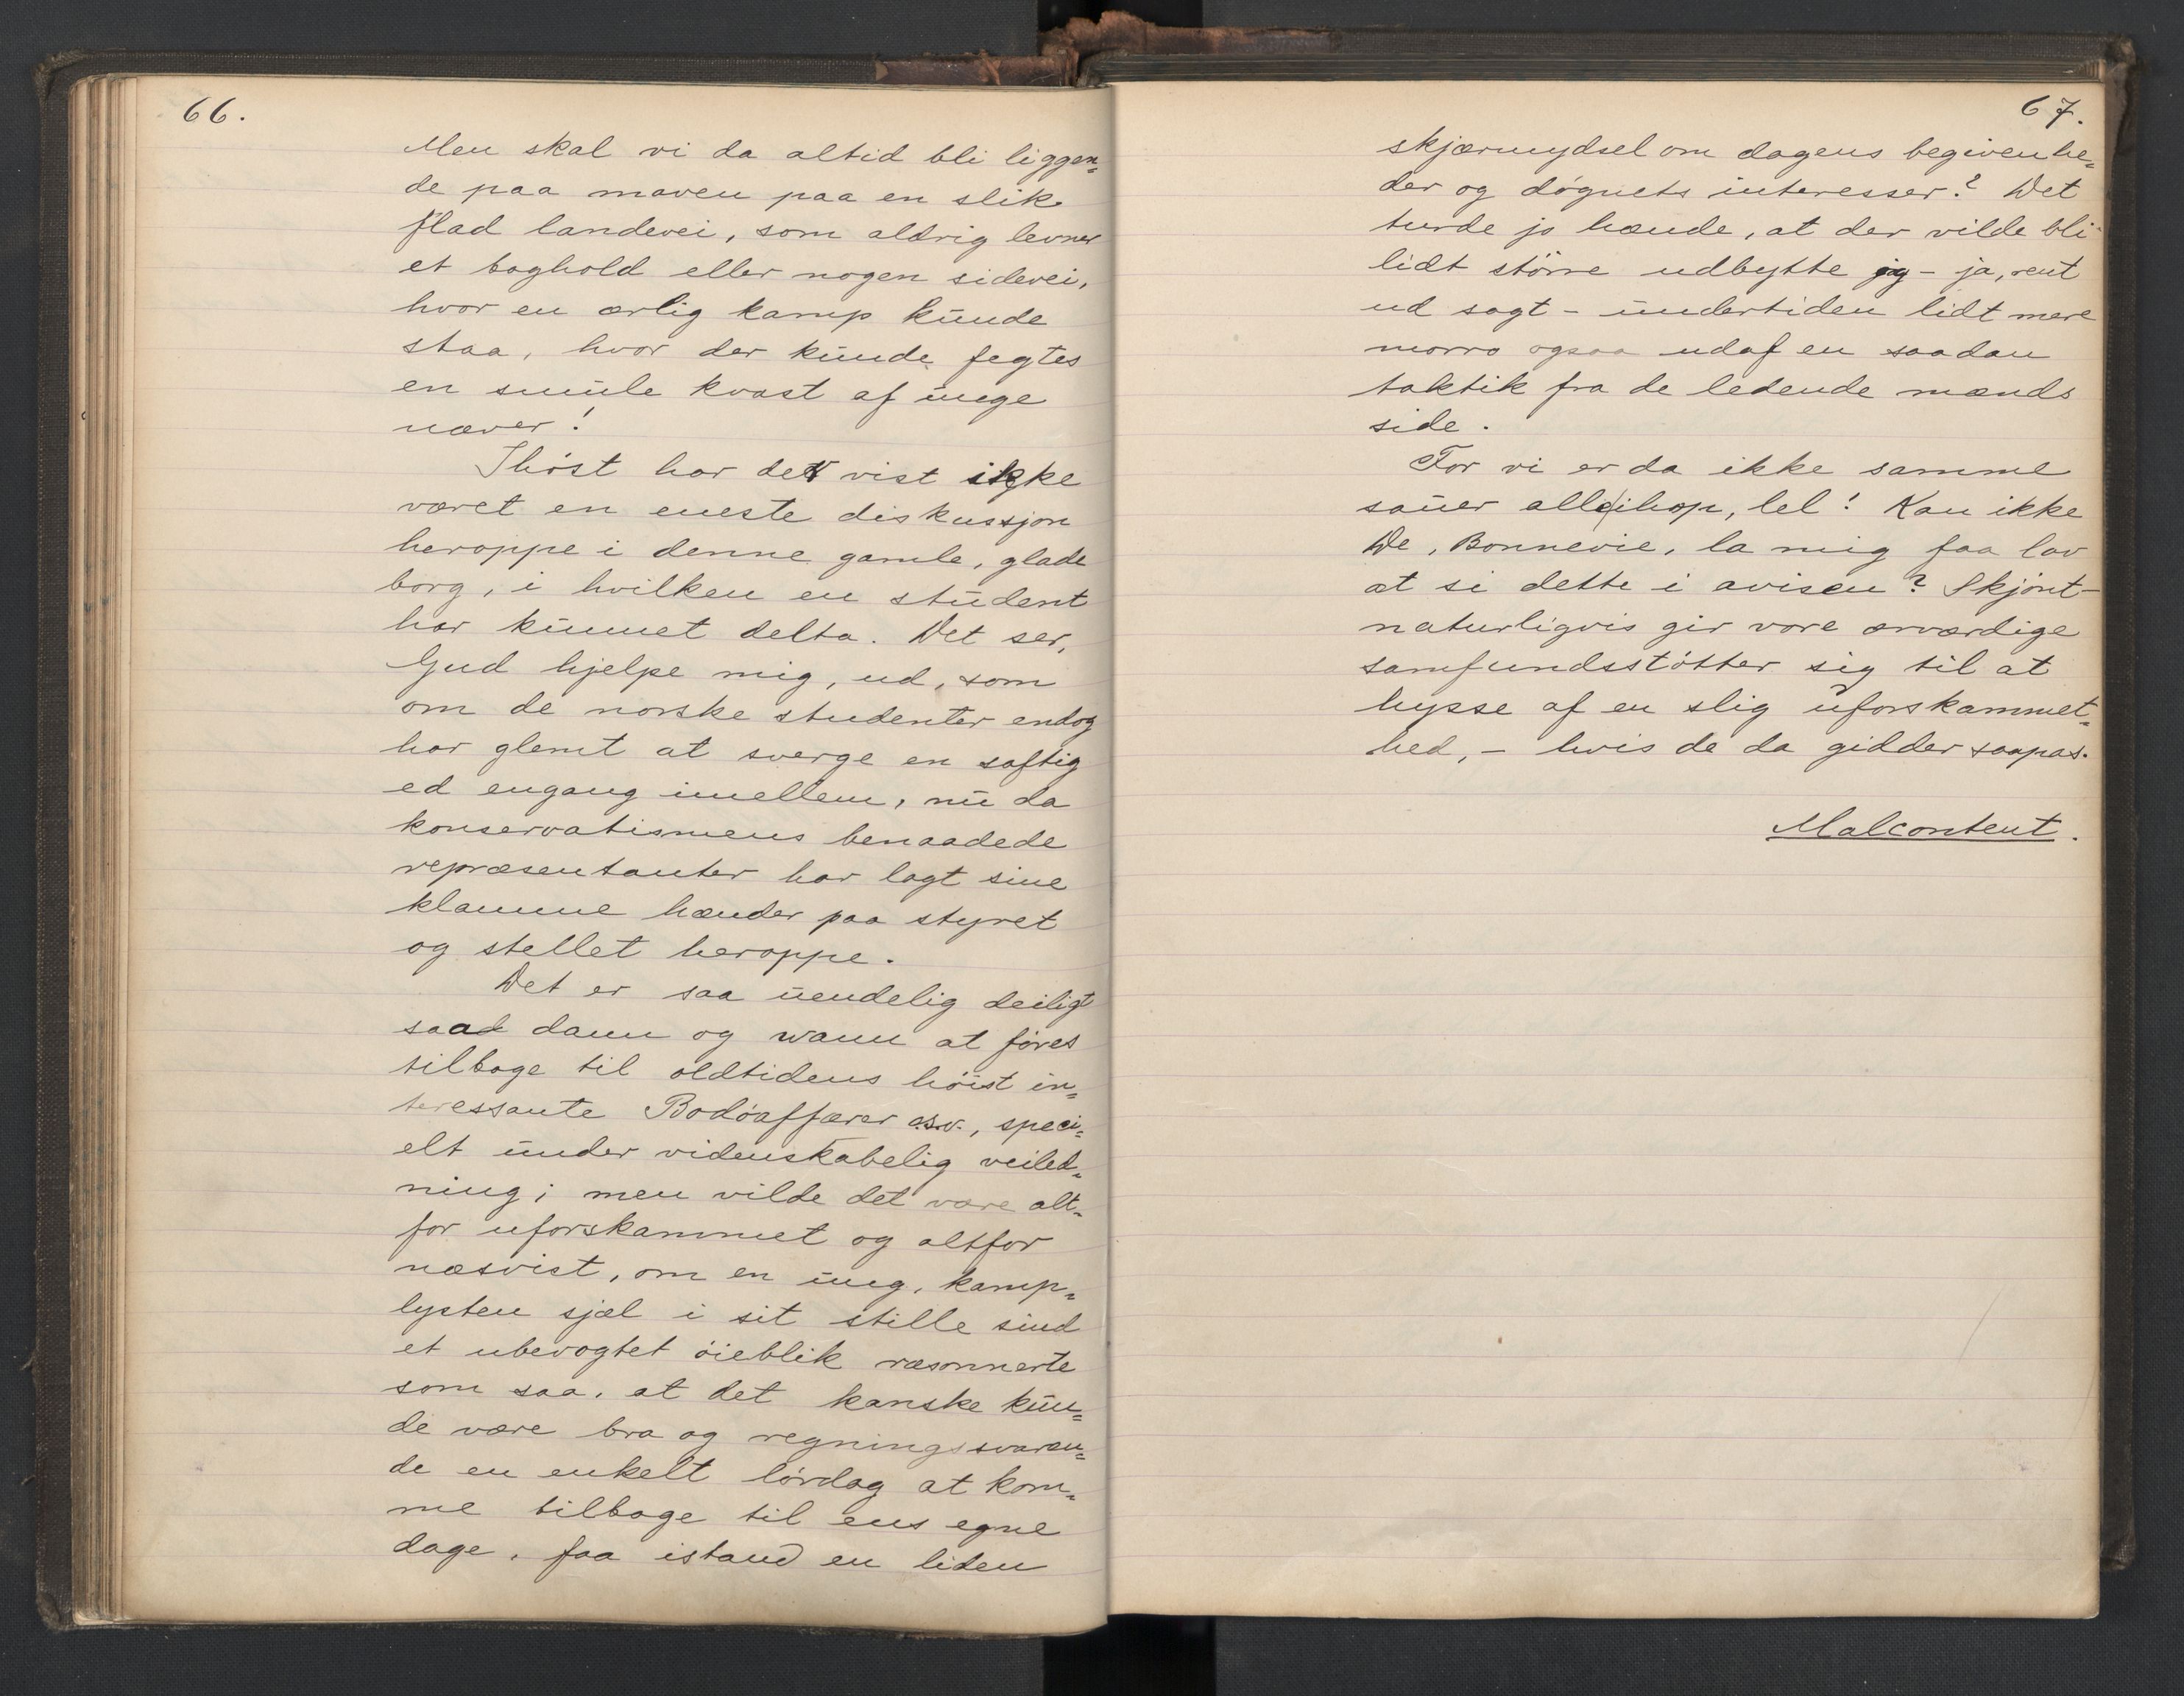 66.
Men skal vi da altid bli liggen=
de paa maven paa en slik
flad landevei, som aldrig levner
et baghold eller nogen sidevei,
hvor en ærlig kamp kunde
staa, hvor der kunde fegtes
en smule kvast af unge
næver!
Ihöst har det vist ikke
været en eneste diskussjon
heroppe i denne gamle, glade
borg, i hvilken en student
har kunnet delta. Det ser,
Gud hjelpe mig, ud, som
om de norske studenter endog
har glemt at sverge en saftig
ed engang imellem, nu da
konservatismens benaadede
repræsentanter har lagt sine
klamme hænder paa styret
og stellet heroppe.
Det er saa uendelig deiligt
saa dann og wann at föres
tilbage til oldtidens höist in=
teressante Bodöaffærer osv., speci=
elt under videnskabelig veiled=
ning; men vilde det være alt=
for uforskammet og altfor
næsvist, om en ung, kamp=
lysten sjæl i sit stille sind
et ubevogtet öieblik ræsonnerte
som saa, at det kanske kun=
de være bra og regningssvaren=
de en enkelt lördag at kom=
me tilbage til ens egne
dage, faa istand en liden
67.
skjærmydsel om dagens begivenhe=
der og dögnets interesser? Det
turde jo hænde, at der vilde bli
lidt större udbytte og – ja, rent
ud sagt – undertiden lidt mere
morro ogsaa udaf en saadan
taktik fra de ledende mænds
side.
For vi er da ikke samme
sauer allihop, lel! Kan ikke
De, Bonnevie, la mig faa lov
at si dette i avisen? Skjönt –
naturligvis gir vore ærværdige
samfundsstötter sig til at
hysse af en slig uforskammet=
hed, – hvis de da gidder saapas.
Malcontent.